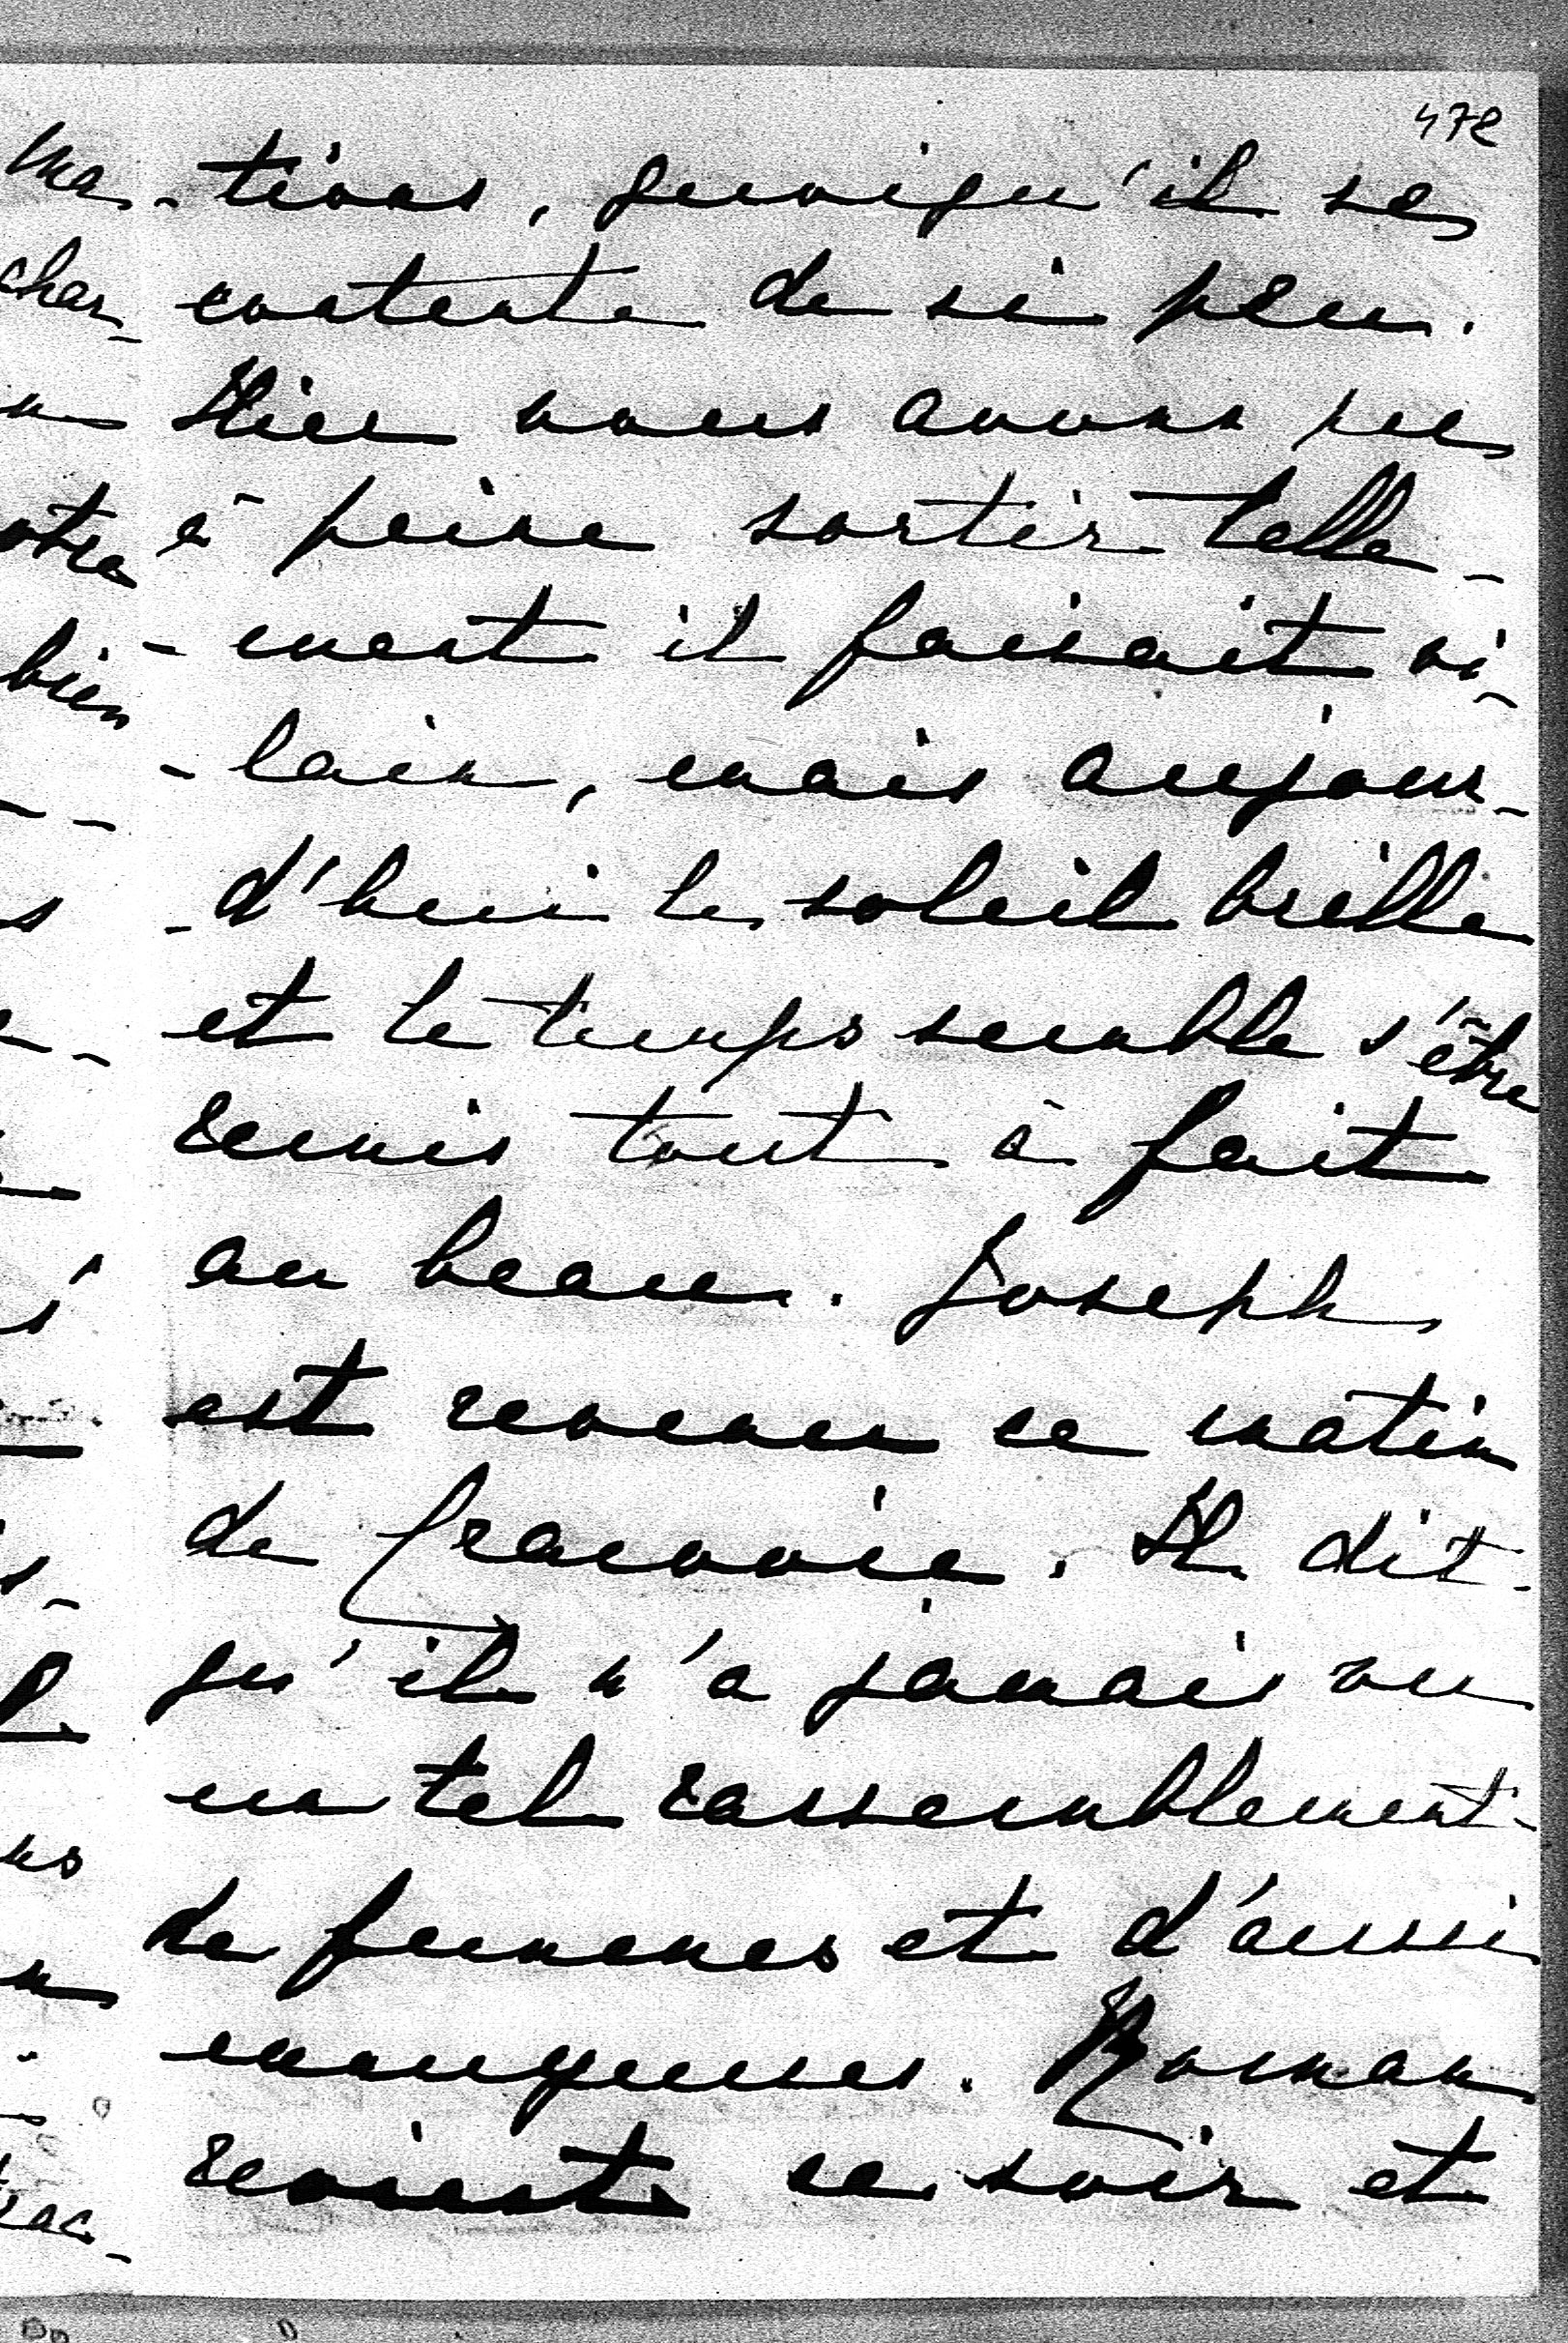 472
-tions, quoiqu'il se
contente de si peu.
Hier nous avons pu
à peine sortir telle-
-ment il faisait vi-
-lain, mais aujour-
-d'hui le soleil brille
et le temps semble s'être
remis tout à fait
au beau. Joseph
est revenu ce matin
de Cracovie. Il dit
qu'il n'a jamais vu
un tel rassemblement
de femmes et d'aussi
ennuyeuses. Roman
revient ce soir et
ma-
char-
otre
bien